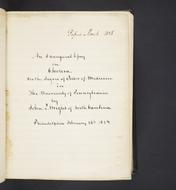 An Inaugural Essay
on
Cholera
for the Degree of Doctor of Medicine
in
The University of Pennsylvania
by
John J. Wright of North Carolina
Philadelphia February 16th 1829